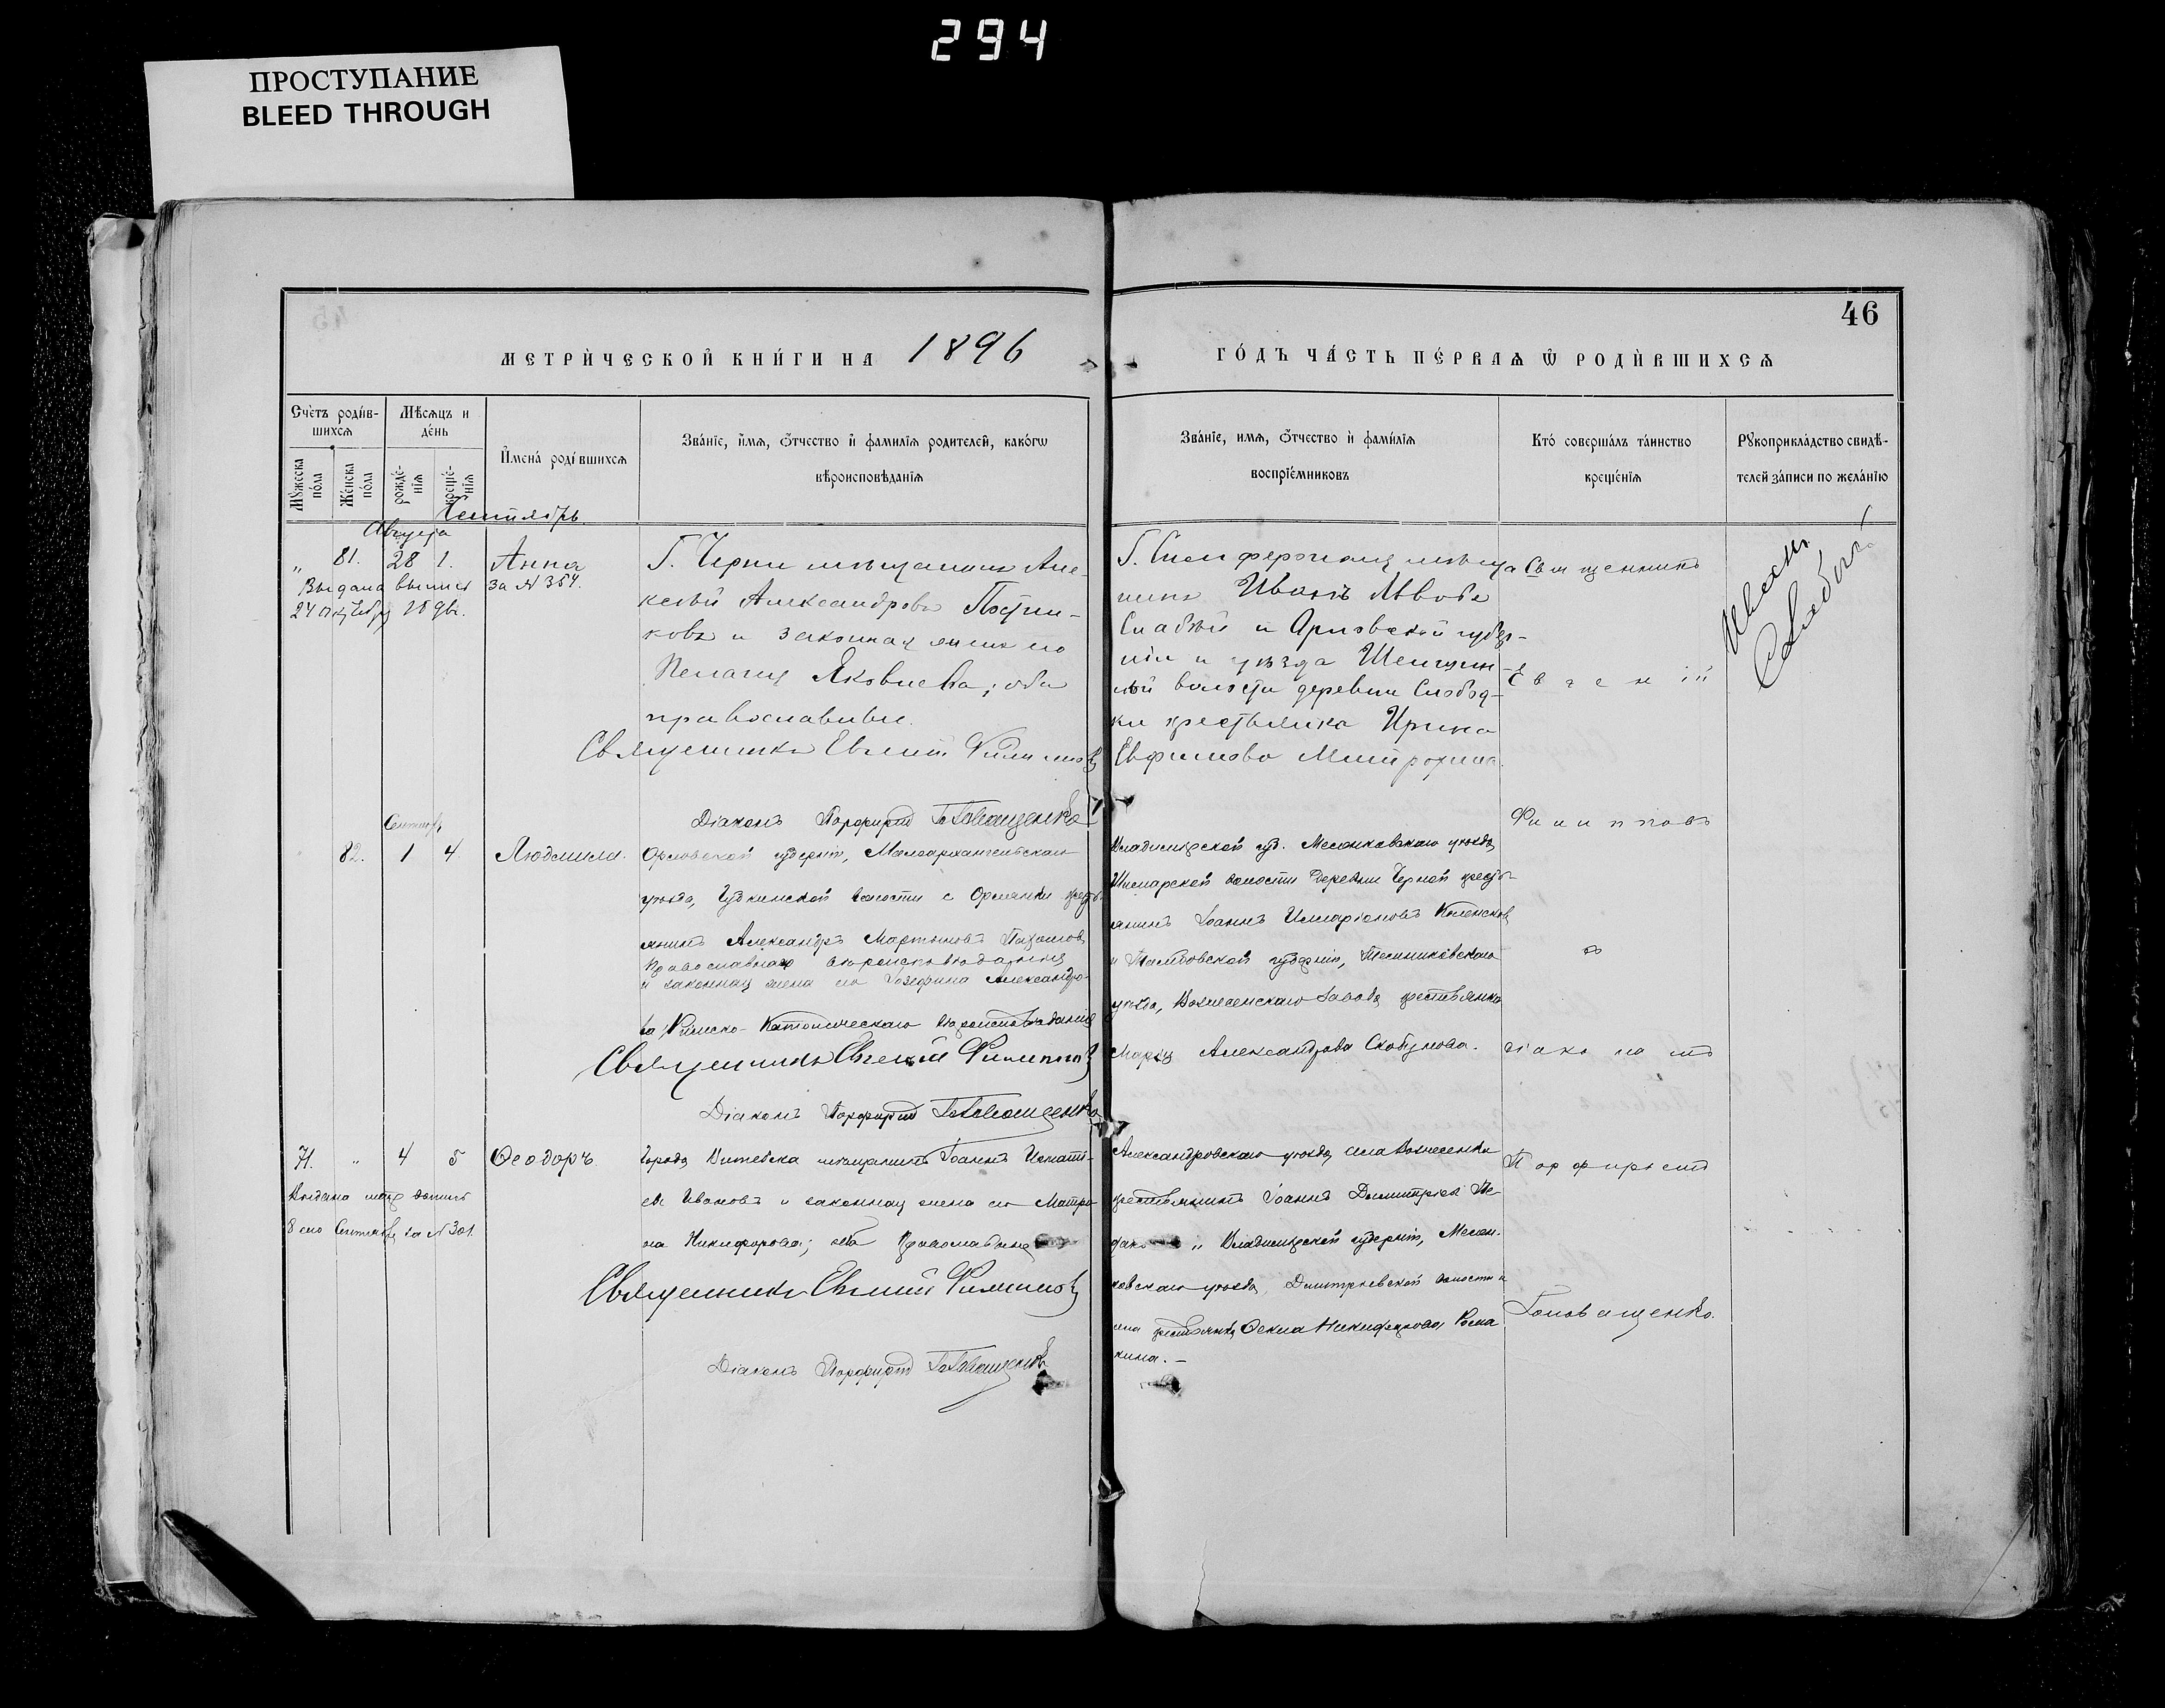 294
ПРОСТУПАНИЕ
BLEED THROUGH
46
МЕТРИ́ЧЕСКОЙ КНИ́ГИ НА 1896
ГО́ДЪ ЧА́СТЬ ПЕ́РВАѦ Ѡ҆ РОДИ́ВШИХСѦ
Сче́тъ роди́в-
шихсѧ
Мѣ́сѧцъ и
де́нь
Мꙋ́жеска
по́ла
Же́нска
по́ла
рожде́-
нїѧ
креще́-
нїѧ
И҆мена́ роди́вшихсѧ
Зва́нїе, и҆́мѧ, ѻ҆́тчество и҆ фами́лїѧ роди́телей, како́гѡ
вѣроисповѣ́данїѧ
Зва́нїе, имѧ, ѻ҆́тчество и҆ фами́лїѧ
воспрїе́мниковъ
Кто́ соверша́лъ та́инство
креще́нїѧ
Рꙋкоприкла́дство свидѣ́-
телей за́писи по жела́нїю
Сентябрь
Августа
„ 81. 28 1. Анна
Выдана выпись за № 354.
24 1896.
Г. Черни мѣщанинъ Але-
ксѣй Александровъ Пост-
ковъ и законная жена его
Пелагия Яковлева; оба
православные.
Священникъ Евгеній Филиповъ
Діаконъ Порфирій Головащенко
Г. Симферополя мѣща
нинъ Иванъ Львовъ
и Орловской губер-
ніи и уѣзда
волости деревни Слобод-
ки крестьянка Ирина
Евфимова Митрохина.
Священникъ
Евгеній
Филипповъ
съ
діакономъ
Порфиріемъ
Головащенко.
Сентябрь
82. 1 4 Людмила.
Орловской губерніи, Малоархангельскаго
уѣзда, волости с. крестъ-
янинъ Александръ Мартыновъ
Православнаго вѣроисповѣданія
и законная жена его Іозефина Александро-
ва Римско-Католическаго вѣроисповѣданія
Священникъ Евгеній Филиповъ
Діаконъ Порфирій Головащенко
Владимірской губ. Меленковскаго уѣзда,
волости деревни Черной кресть-
янинъ Іоаннъ Илларіоновъ
и Тамбовской губерніи, Темниковскаго
уѣзда, Вознесенскаго завода крестьянка
Марія Александрова
71. „ 4 5 Ѳеодоръ
Выдана выпись
8 сего Сентября за № 301.
Города Витебска мѣщанинъ Іоаннъ Игнать-
евъ Ивановъ и законная жена его Матро
на Никифорова; оба Православные
Священникъ Евгеній Филиповъ
Діаконъ Порфирій Головащенко
Александровскаго уѣзда, села Вознесенки
крестьянинъ Іоаннъ Димитріевъ
„ Владимірской губерніи, Мелен-
ковскаго уѣзда, Дмитріевской волости и
села крестьянка Ѳекла Никифорова
кина. —